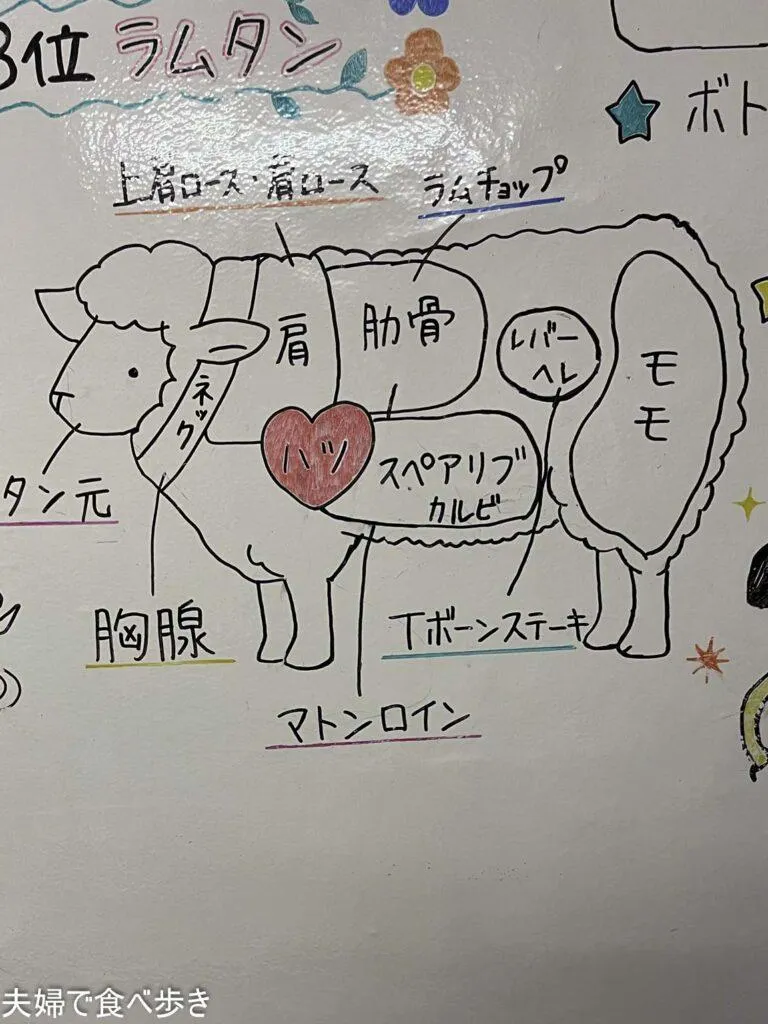 3位 ラムタン
ボト
上肩ロース・肩ロース
ラムチョップ
肩
肋骨
レバー
ヘレ
モモ
ネック
ハツ
スペアリブ
カルビ
タン元
胸腺
Tボーンステーキ
マトンロイン
夫婦で食べ歩き